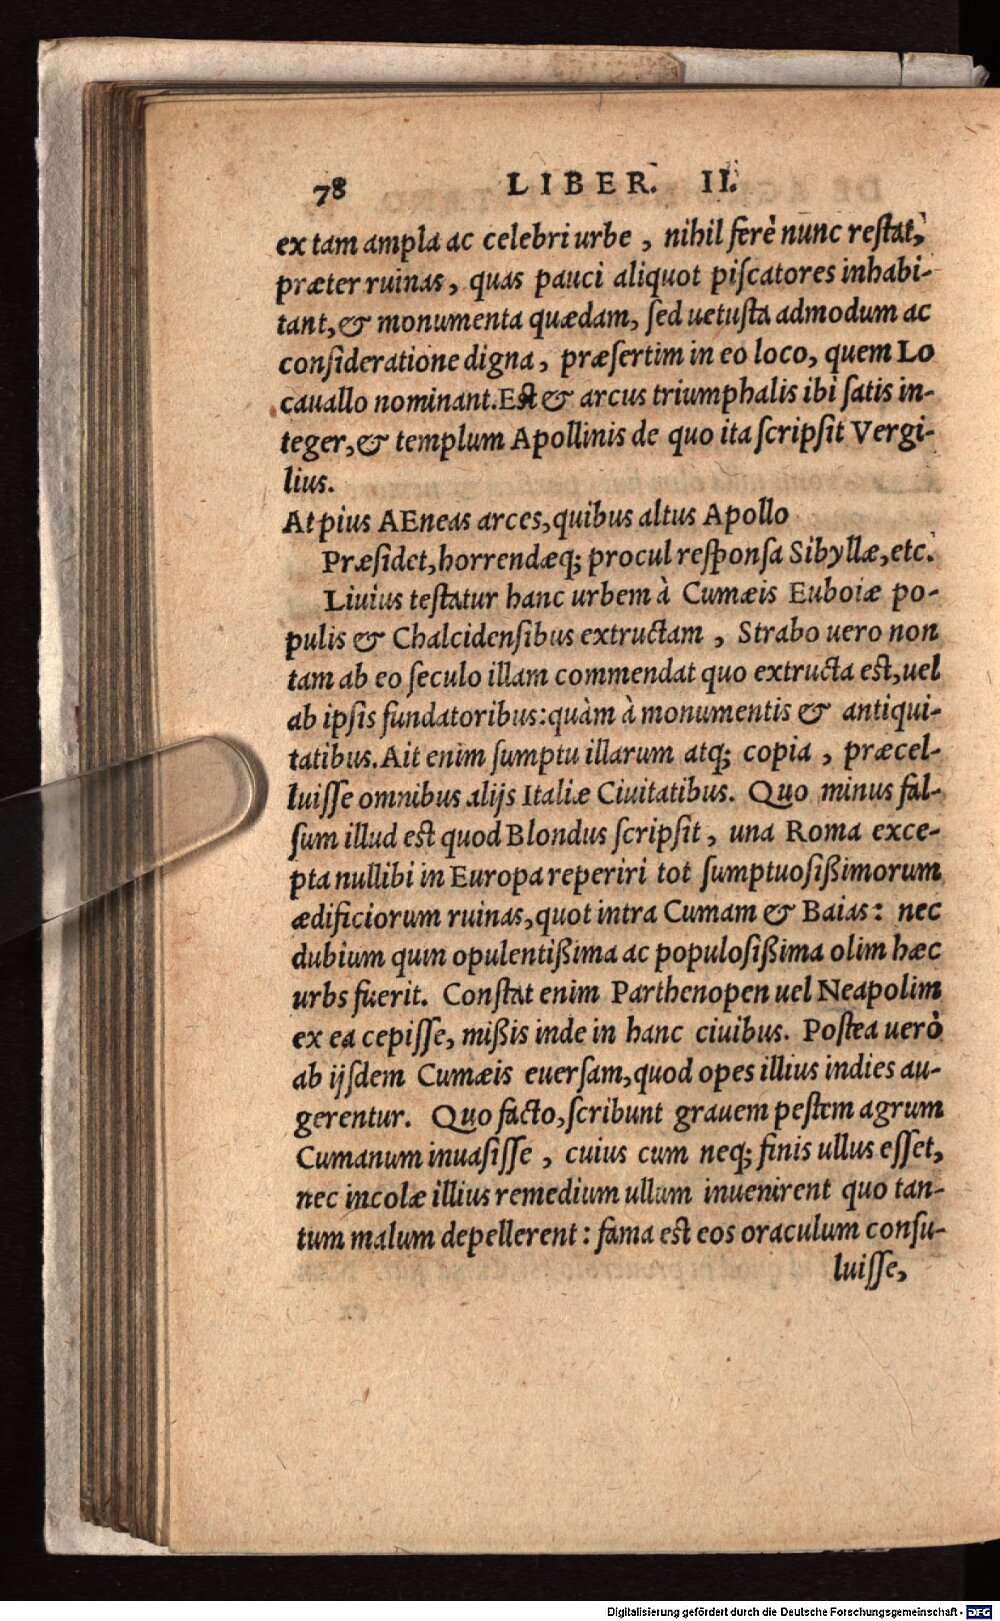 78 LIBER. II.
ex tam ampla ac celebri urbe , nihil ferè nunc restat,
præter ruinas, quas pauci aliquot piscatores inhabi-
tant, & monumenta quædam, sed uetusta admodum ac
consideratione digna, præsertim in eo loco, quem Lo
cauallo nominant. Est & arcus triumphalis ibi satis in-
teger, & templum Apollinis de quo ita scripsit Vergi-
lius.
At pius AEneas arces, quibus altus Apollo
Præsidet, horrendæq; procul responsa Sibyllæ, etc.
Liuius testatur hanc urbem à Cumæis Euboiæ po-
pulis & Chalcidensibus extructam , Strabo uero non
tam ab eo seculo illam commendat quo extructa est, uel
ab ipsis fundatoribus: quàm à monumentis & antiqui-
tatibus. Ait enim sumptu illarum atq; copia , præcel-
luisse omnibus alijs Italiæ Ciuitatibus. Quo minus fal-
sum illud est quod Blondus scripsit, una Roma exce-
pta nullibi in Europa reperiri tot sumptuosißimorum
ædificiorum ruinas, quot intra Cumam & Baias: nec
dubium quin opulentißima ac populosißima olim hæc
urbs fuerit. Constat enim Parthenopen uel Neapolim
ex ea cepisse, mißis inde in hanc ciuibus. Postea uerò
ab ijsdem Cumæis euersam, quod opes illius indies au-
gerentur. Quo facto, scribunt grauem pestem agrum
Cumanum inuasisse , cuius cum neq; finis ullus esset,
nec incolæ illius remedium ullum inuenirent quo tan-
tum malum depellerent: fama est eos oraculum consu-
luisse,
Digitalisierung gefördert durch die Deutsche Forschungsgemeinschaft - DFG